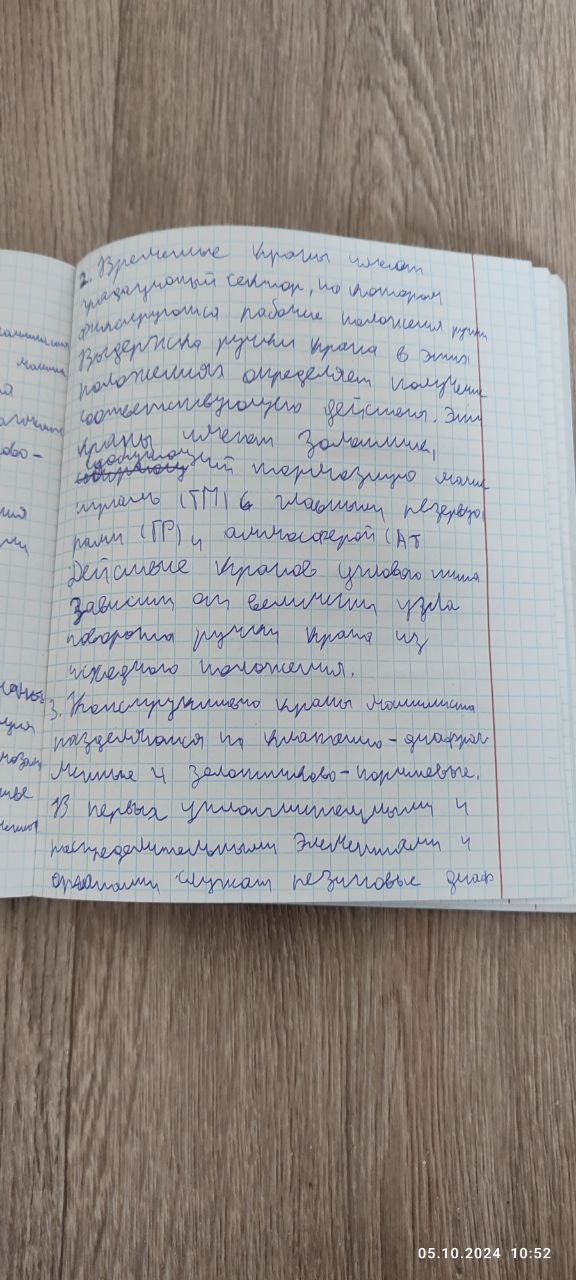 2. Временные краны имеют
градационный сектор, на котором
фиксируются рабочие положения ручки
Выдержка ручки крана в этих
положениях определяет получение
соответствующего действия. Эти
краны имеют золотник,
сообщающий тормозную маги
страль (ТМ) с главными резервуа
рами (ГР) и атмосферой (АТ
Действие кранов углового типа
зависит от величины угла
поворота ручки крана из
исходного положения.
3. Конструктивно краны машиниста
разделяются на клапанно-диафраг
менные и золотниково-поршневые.
В первых уплотнительными и
распределительными элементами и
органами служат резиновые диаф
05.10.2024 10:52